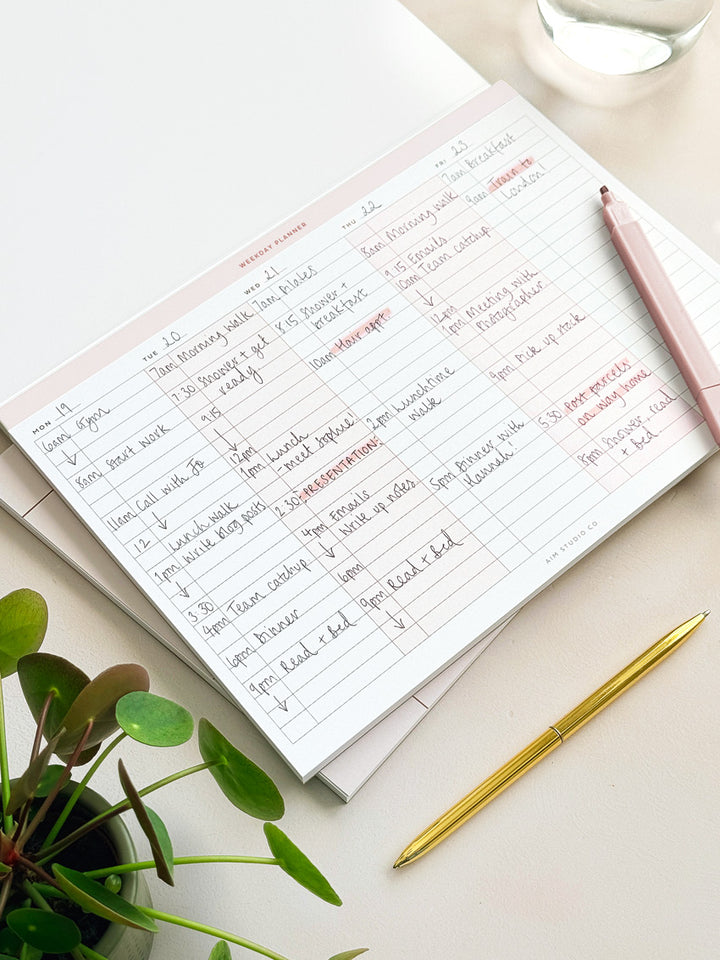 WEEKDAY PLANNER
MON 19
6am Gym
↓
8am Start work
11am Call with Jo
↓
12 Lunch walk
1pm Write blog posts
↓
3:30
4pm Team catchup
6pm Dinner
9pm Read + Bed
↓
TUE 20
7am Morning walk
7:30 Shower + get
ready
9:15
↓
12pm
1pm Lunch
- meet Sophie
2:30: PRESENTATION:
4pm Emails
↓ Write up notes
6pm
9pm Read + Bed
↓
WED 21
7am Pilates
8:15 Shower +
breakfast
10am Hair appt
2pm Lunchtime
walk
5pm Dinner with
Hannah!
THU 22
8am Morning walk
9:15 Emails
10am Team catchup
↓
12pm
1pm Meeting with
Photographer
9pm Pick up stock
5:30 Post parcels
on way home
8pm Shower, read
+ Bed
FRI 23
7am Breakfast
9am Train to
London!
AIM STUDIO CO